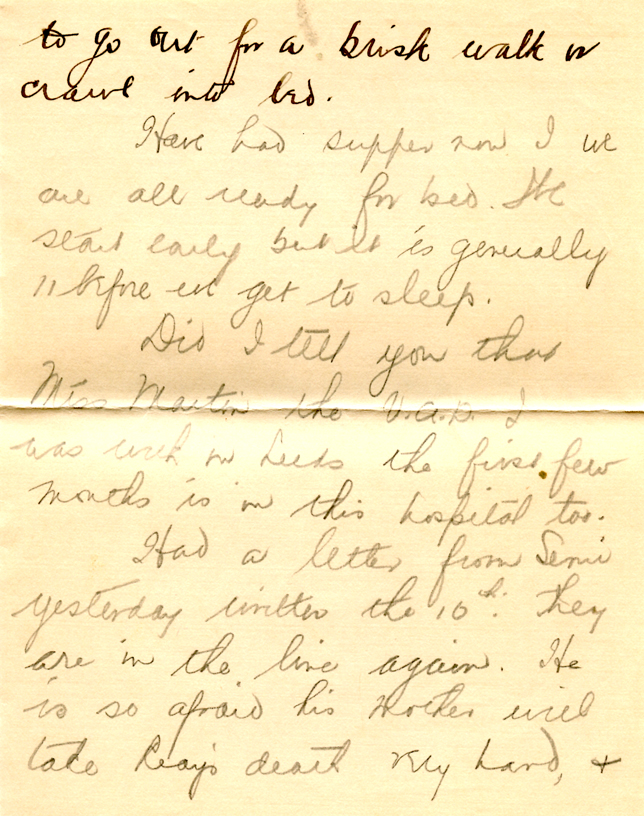 to go out for a brisk walk or
crawl into bed.
Have had supper now & we
are all ready for bed. We
start early but it is generally
11 before we get to sleep.
Did I tell you that
Miss Martin the V.A.D. I
was with in Leeds the first few
months is in this hospital too.
Had a letter from
yesterday written the 10th. They
are in the line again. He
is so afraid his mother will
take Reay's death very hard, +